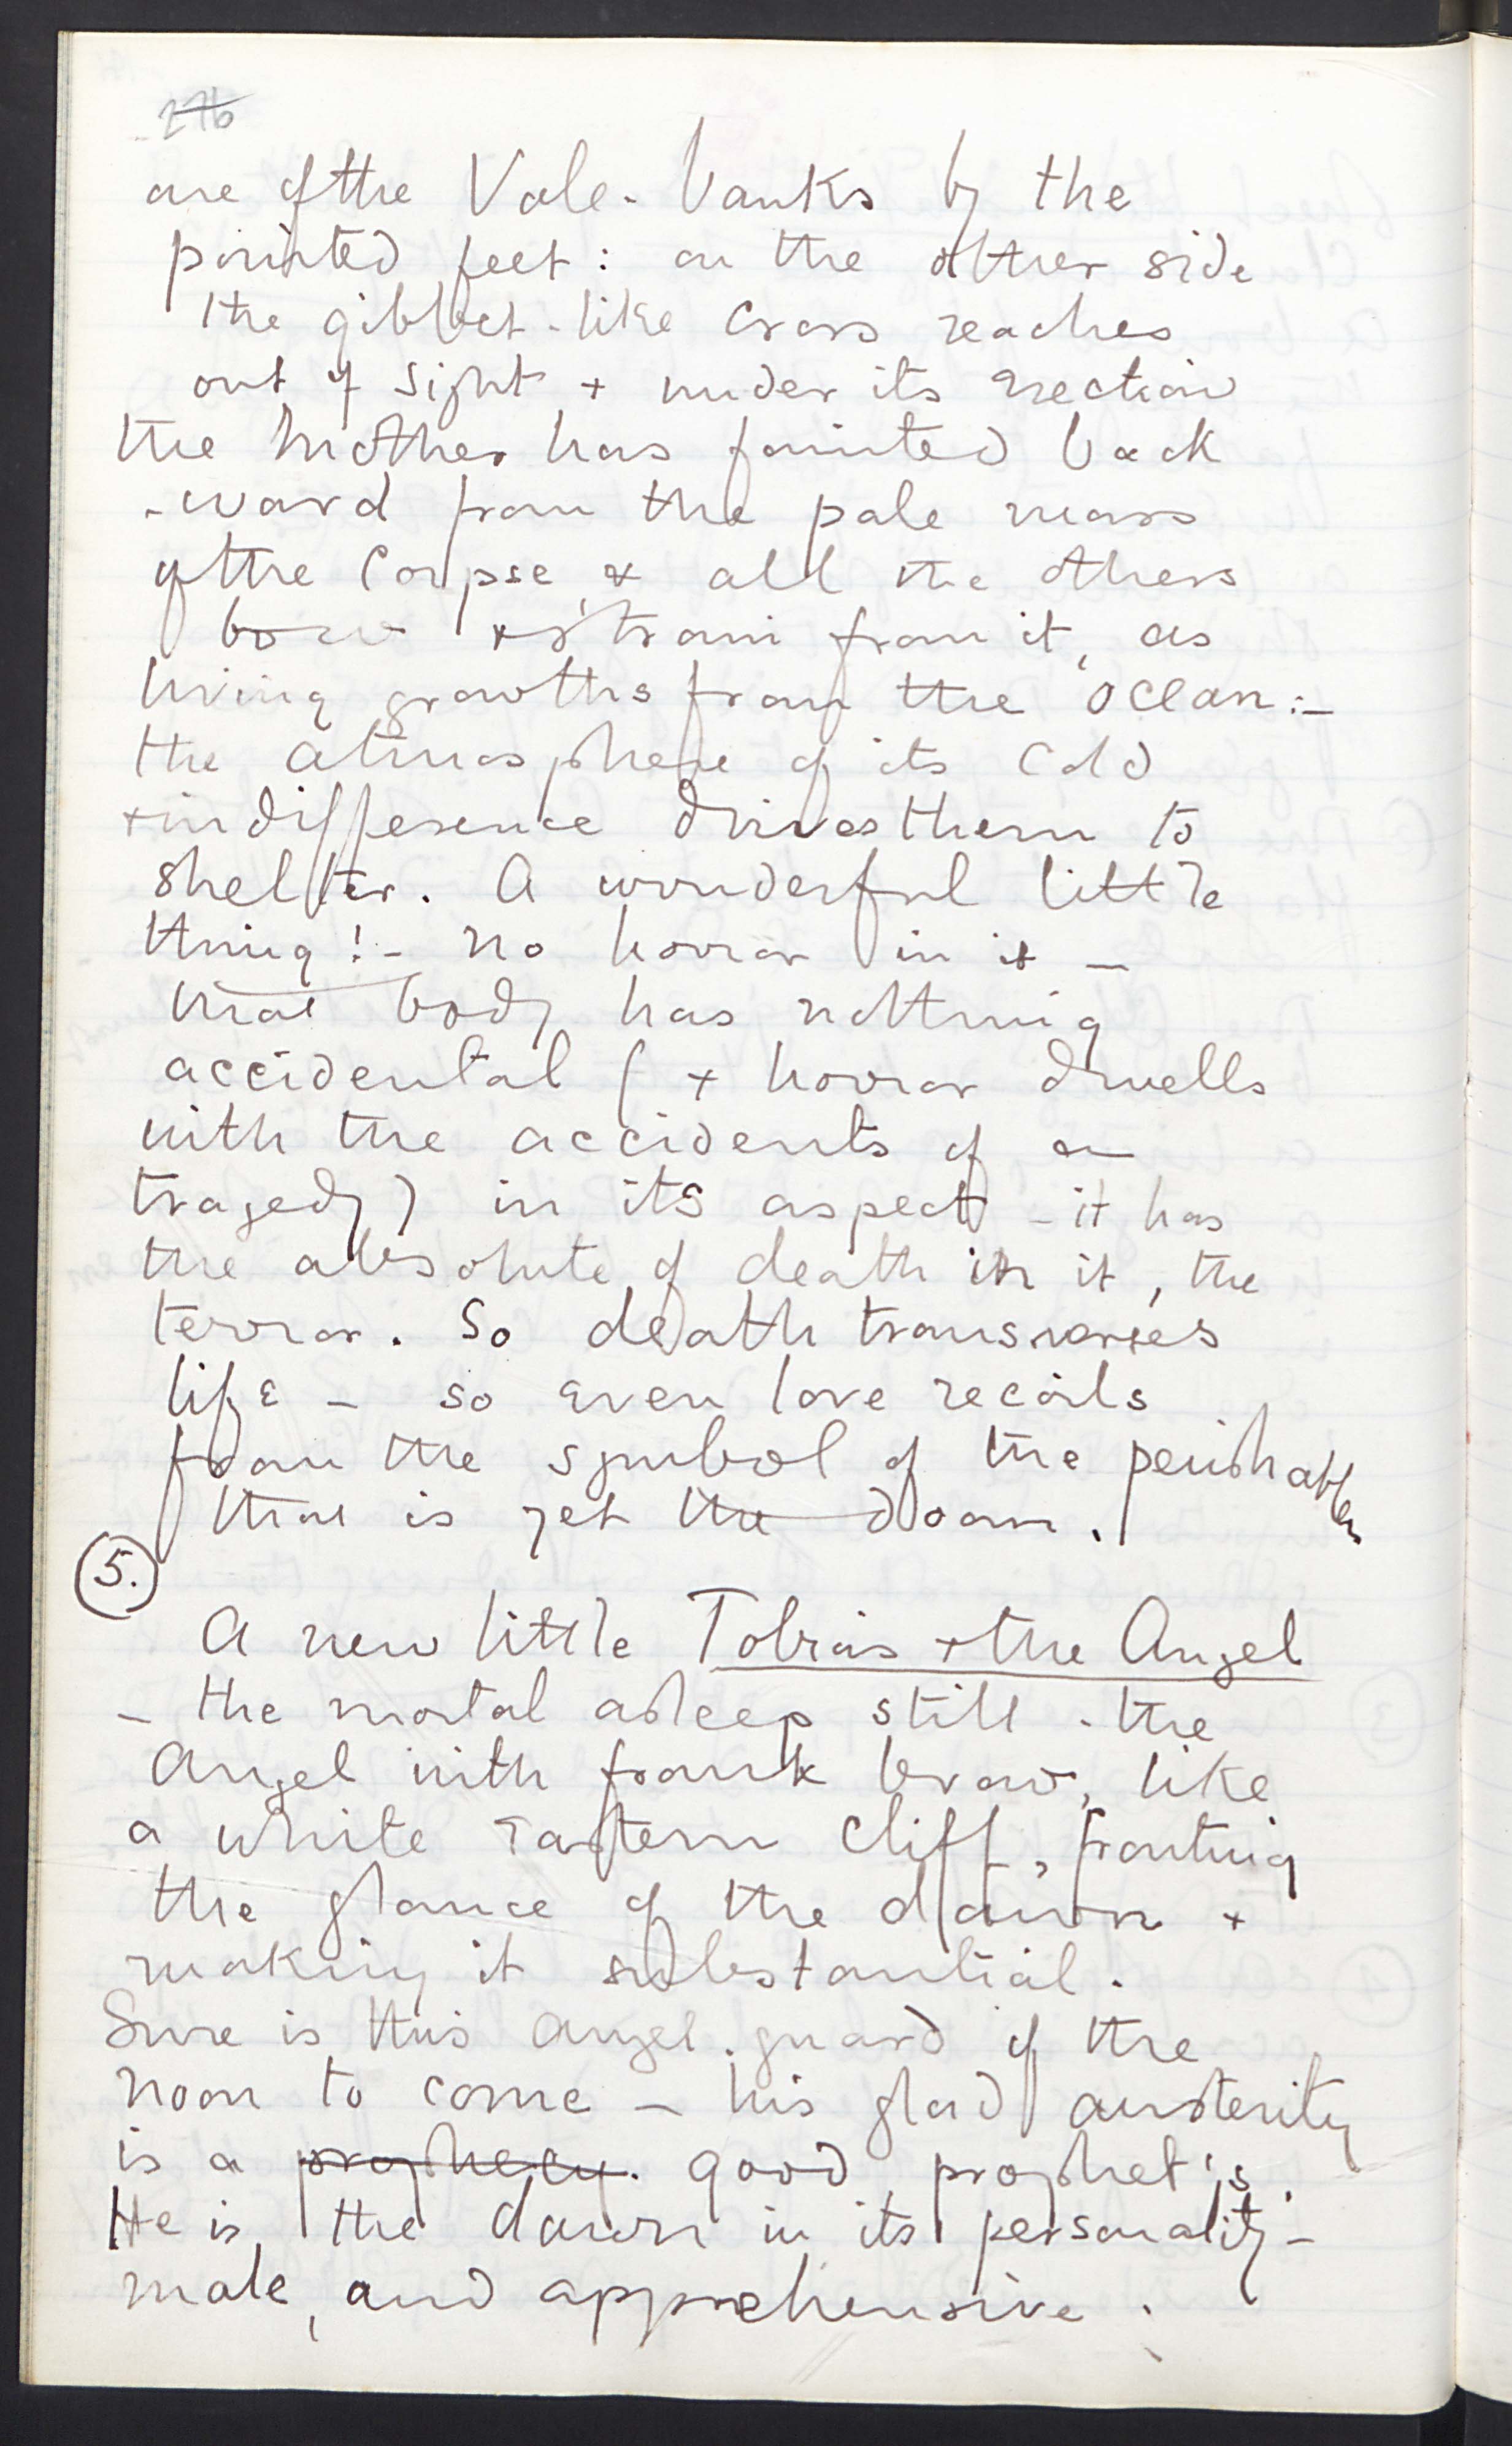 276
one of the Vale-banks by the
pointed feet: on the other side
the gibbet-like Cross reaches
out of sight + under its erection
the Mother has fainted back
-ward from the pale mass
of the Corpse, & all the others
bow + strain from it, as
living growths from the ocean:-
the atmosphere of its cold
+ indifference drives them to
shelter. A wonderful little
thing! - no horror in it -
that body has nothing
accidental (+ horror dwells
with the accidents of a
tragedy) in its aspect - it has
the absolute of death in it, the
terror. So death transverses
life - so even love recoils
from the symbol of the perishable
that is yet the doom.
5.
A new little Tobias + the Angel
- the mortal asleep still - the
Angel with frank brow, like
a white Eastern cliff, fronting
the glance of the dawn +
making it substantial.
Sure is this angel-guard of the
noon to come - his glad austerity
is a prophecy. good prophet's.
He is the dawn in its personality -
male, and apprehensive.